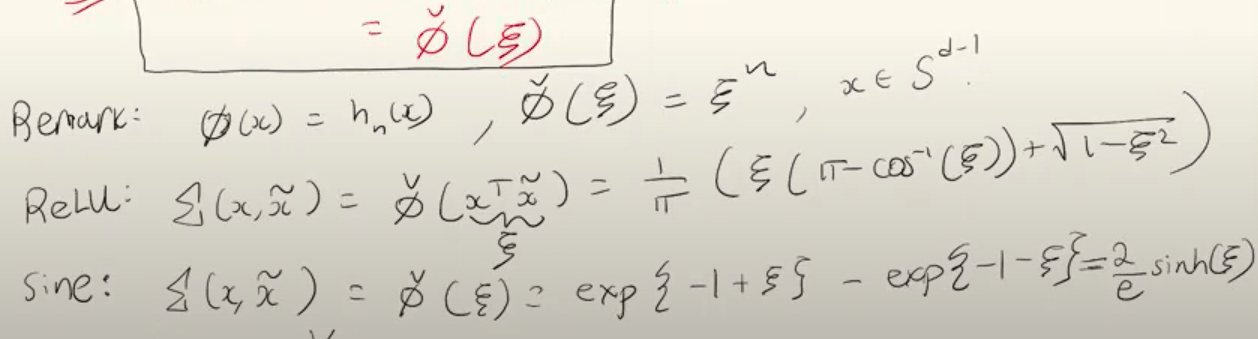 = φ̌(ξ)
Remark: φ(x) = hₙ(x) , φ̌(ξ) = ξⁿ , x ∈ S^{d-1}.
ReLU: Σ(x, x̃) = φ̌(xᵀx̃) = 1/π (ξ(π-cos⁻¹(ξ))+√(1-ξ²))
ξ
Sine: Σ(x, x̃) = φ̌(ξ) = exp{-1+ξ} - exp{-1-ξ} = 2/e sinh(ξ)